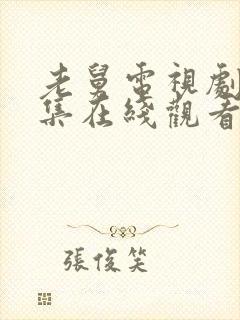 老舅電視劇
集在綫觀看
張俊笑